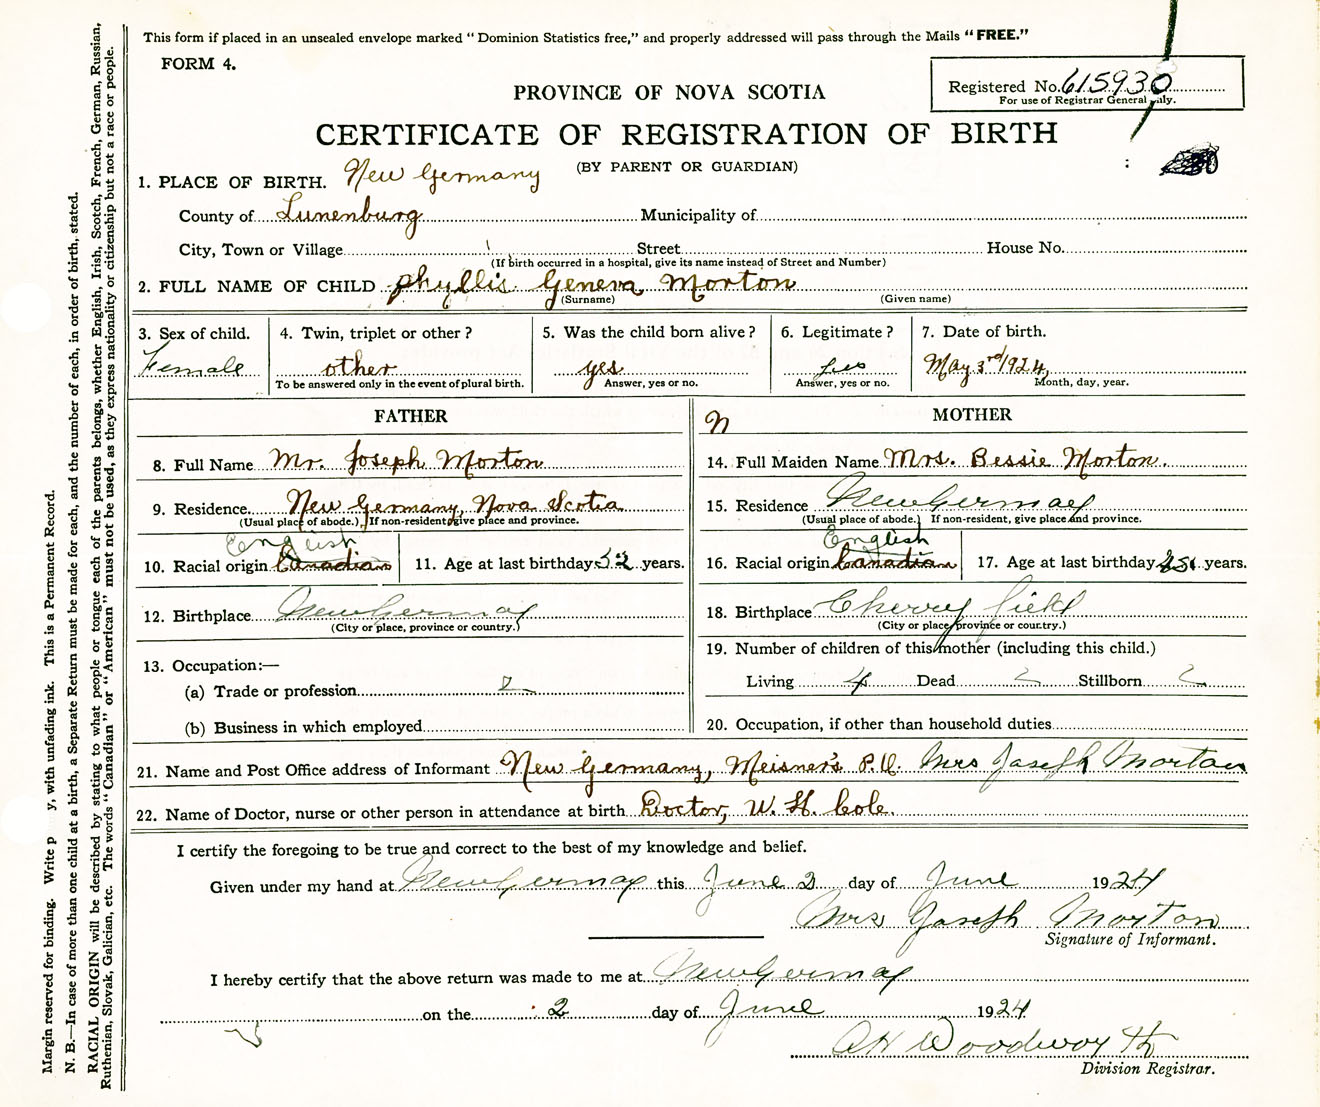 This form if placed in an unsealed envelope marked "Dominion Statistics free," and properly addressed will pass through the Mails "FREE."
FORM 4.
Registered No. 615930
For use of Registrar General only.
PROVINCE OF NOVA SCOTIA
CERTIFICATE OF REGISTRATION OF BIRTH
(BY PARENT OR GUARDIAN)
1. PLACE OF BIRTH. New Germany
County of Lunenburg Municipality of
City, Town or Village Street House No.
(If birth occurred in a hospital, give its name instead of Street and Number)
2. FULL NAME OF CHILD Phyllis Geneva Morton
(Surname) (Given name)
3. Sex of child. 4. Twin, triplet or other? 5. Was the child born alive? 6. Legitimate? 7. Date of birth.
Female other yes yes May 3rd 1924
To be answered only in the event of plural birth. Answer, yes or no. Answer, yes or no. Month, day, year.
FATHER
8. Full Name Mr. Joseph Morton
9. Residence. New Germany, Nova Scotia
(Usual place of abode.) If non-resident, give place and province.
English
10. Racial origin Canadian 11. Age at last birthday 52 years.
12. Birthplace New Germay
(City or place, province or country.)
13. Occupation:—
(a) Trade or profession
(b) Business in which employed
N MOTHER
14. Full Maiden Name Mrs. Bessie Morton.
15. Residence New Germay
(Usual place of abode.) If non-resident, give place and province.
English
16. Racial origin Canadian 17. Age at last birthday years.
18. Birthplace Cherry field
(City or place, province or country.)
19. Number of children of this mother (including this child.)
Living 4 Dead Stillborn
20. Occupation, if other than household duties
21. Name and Post Office address of Informant New Germany, Meisner's P.O. Mrs Joseph Morton
22. Name of Doctor, nurse or other person in attendance at birth Doctor, W. H. Cole.
I certify the foregoing to be true and correct to the best of my knowledge and belief.
Given under my hand at New Germay this June 2 day of June 1924
Mrs Joseph Morton
Signature of Informant.
I hereby certify that the above return was made to me at New Germay
on the 2 day of June 1924
Division Registrar.
Margin reserved for binding. Write with unfading ink. This is a Permanent Record.
N. B.—In case of more than one child at a birth, a Separate Return must be made for each, and the number of each, in order of birth, stated.
RACIAL ORIGIN will be described by stating to what people or tongue each of the parents belongs, whether English, Irish, Scotch, French, German, Russian,
Ruthenian, Slovak, Galician, etc. The words "Canadian" or "American" must not be used, as they express nationality or citizenship but not a race or people.